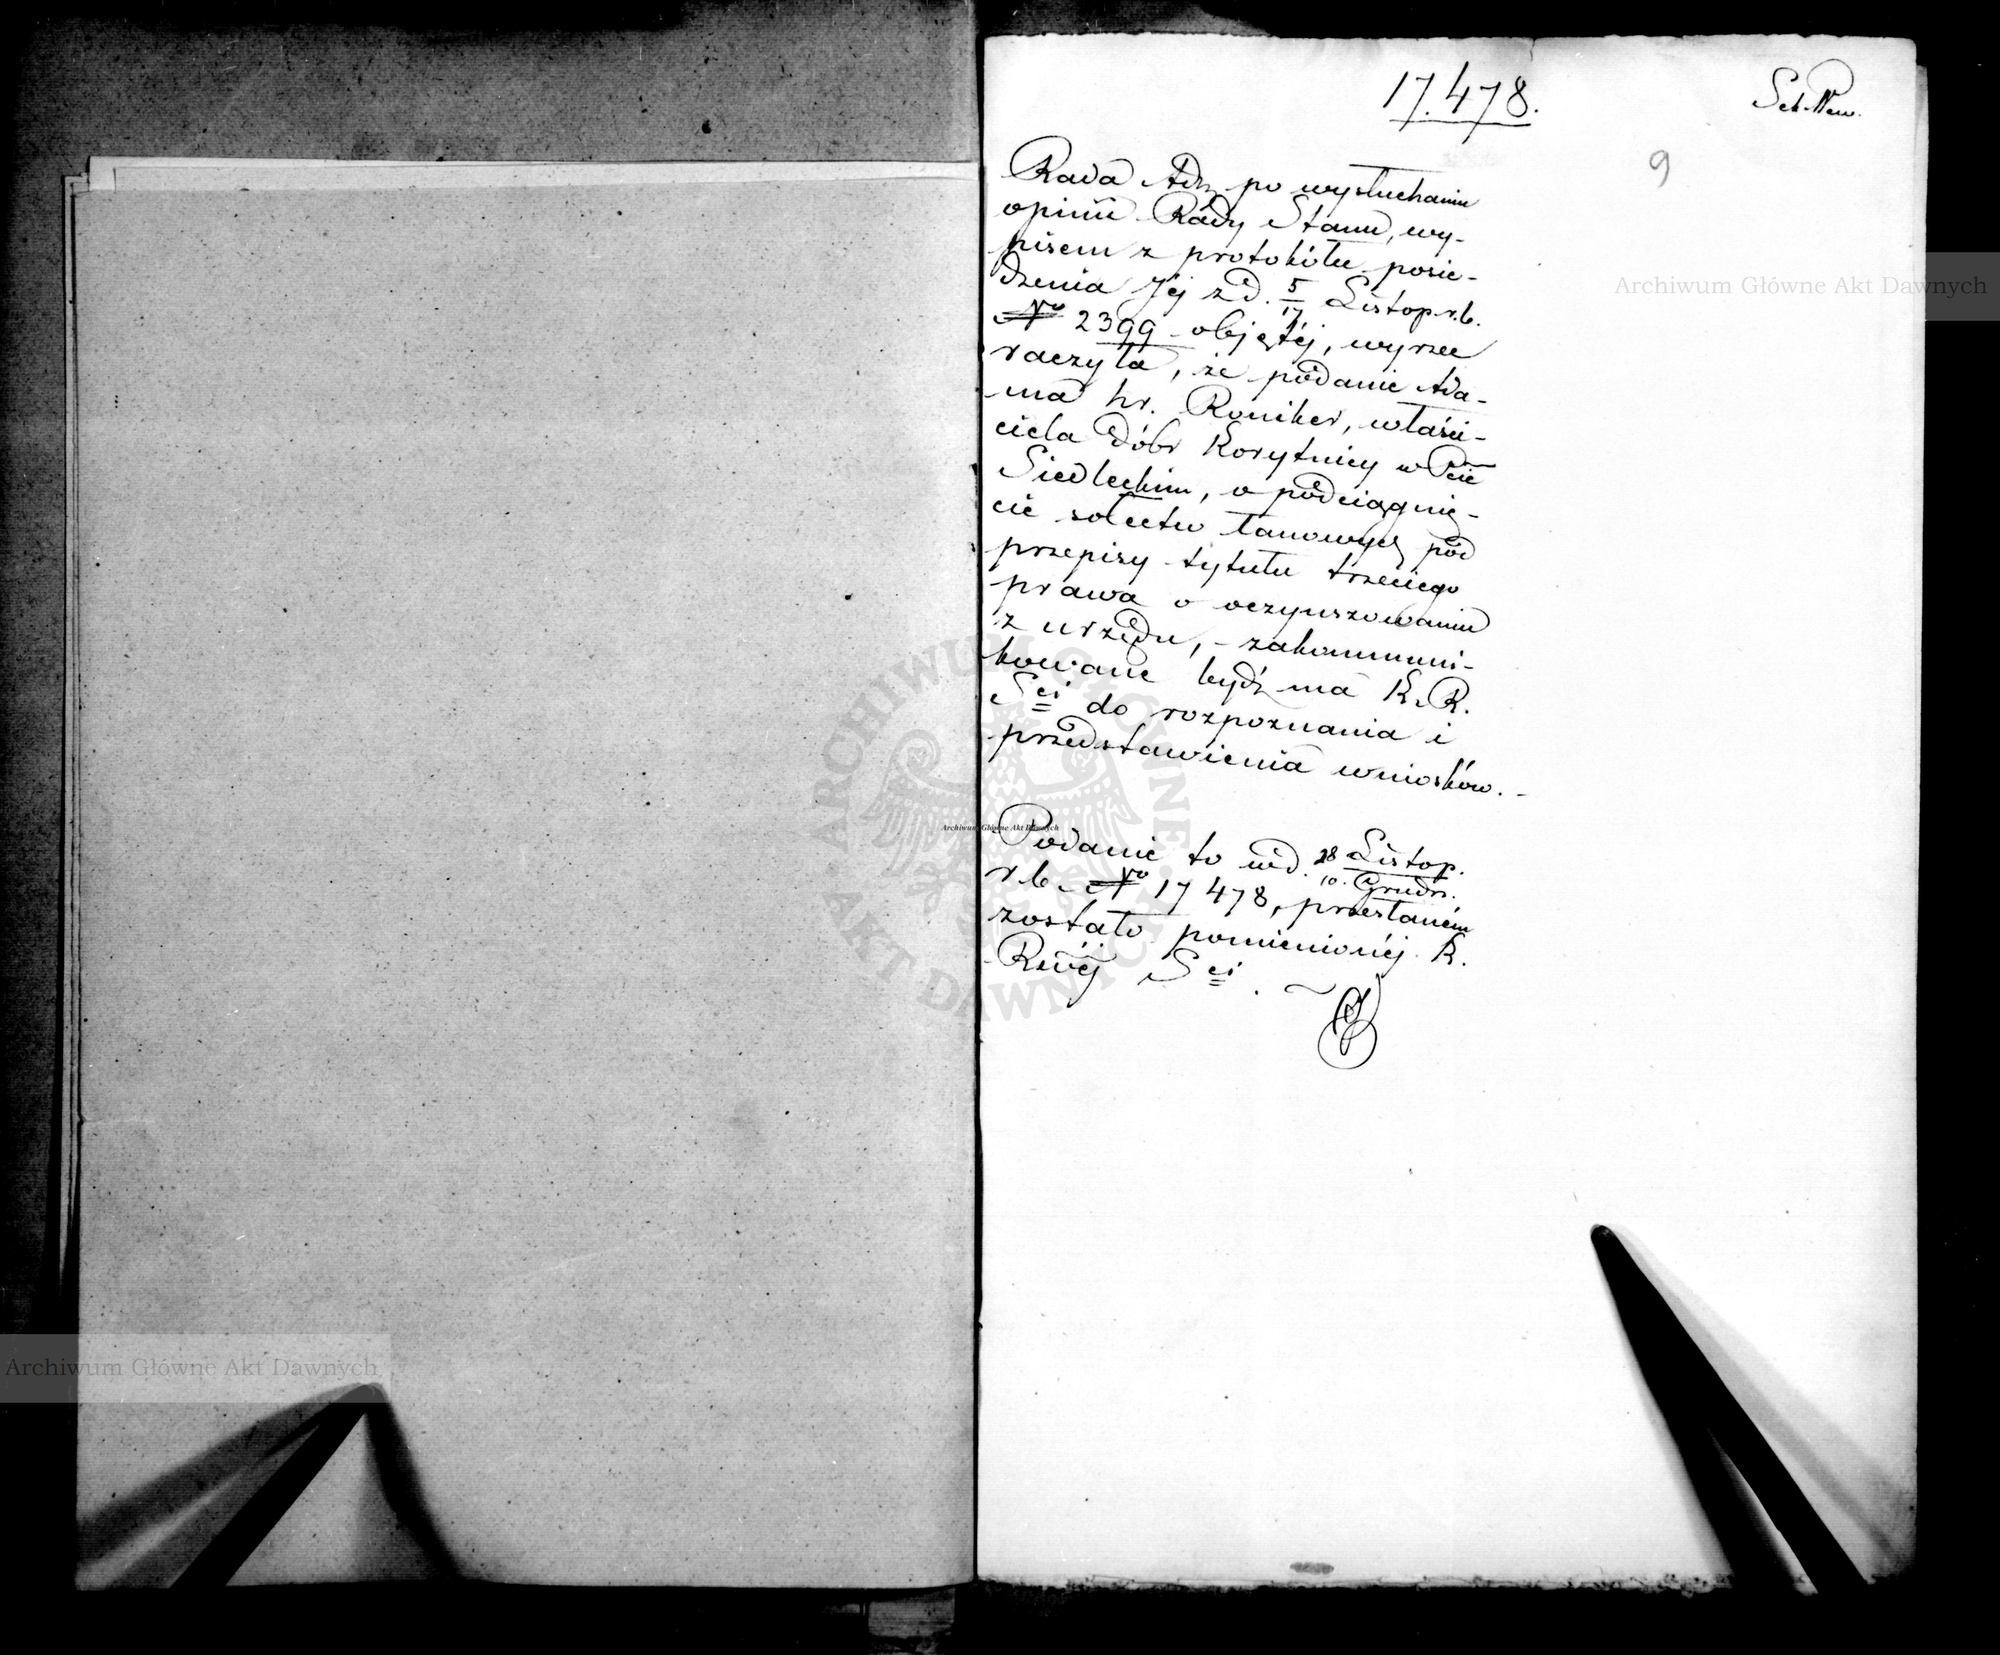 17.478.
9
Rada Adz po wysłuchaniu
opinii Rady Stanu, wy-
pisem z protokółu posie-
dzenia Jej z d. 5/17 Listop. r. b.
No 2399 objętéj, wyrzec
raczyła, że podanie Ada-
ma hr. Roniker, właści-
ciela dóbr Korytnicy w Pcie
Siedleckim, o podciągnię-
cie sołectw łanowych pod
przepisy tytułu trzeciego
prawa o oczynszowaniu
z urzędu, - zakommuni-
kowane bydź ma K. R.
Sci do rozpoznania i
przedstawienia wniosków. -
Podanie to wd. 28 Listop./10. Grudn.
r. b. No 17478, przesłaném
zostało pomienionéj K.
Rwéj Sci.
Archiwum Główne Akt Dawnych
Archiwum Główne Akt Dawnych
Archiwum Główne Akt Dawnych
ARCHIWUM GŁÓWNE AKT DAWNYCH